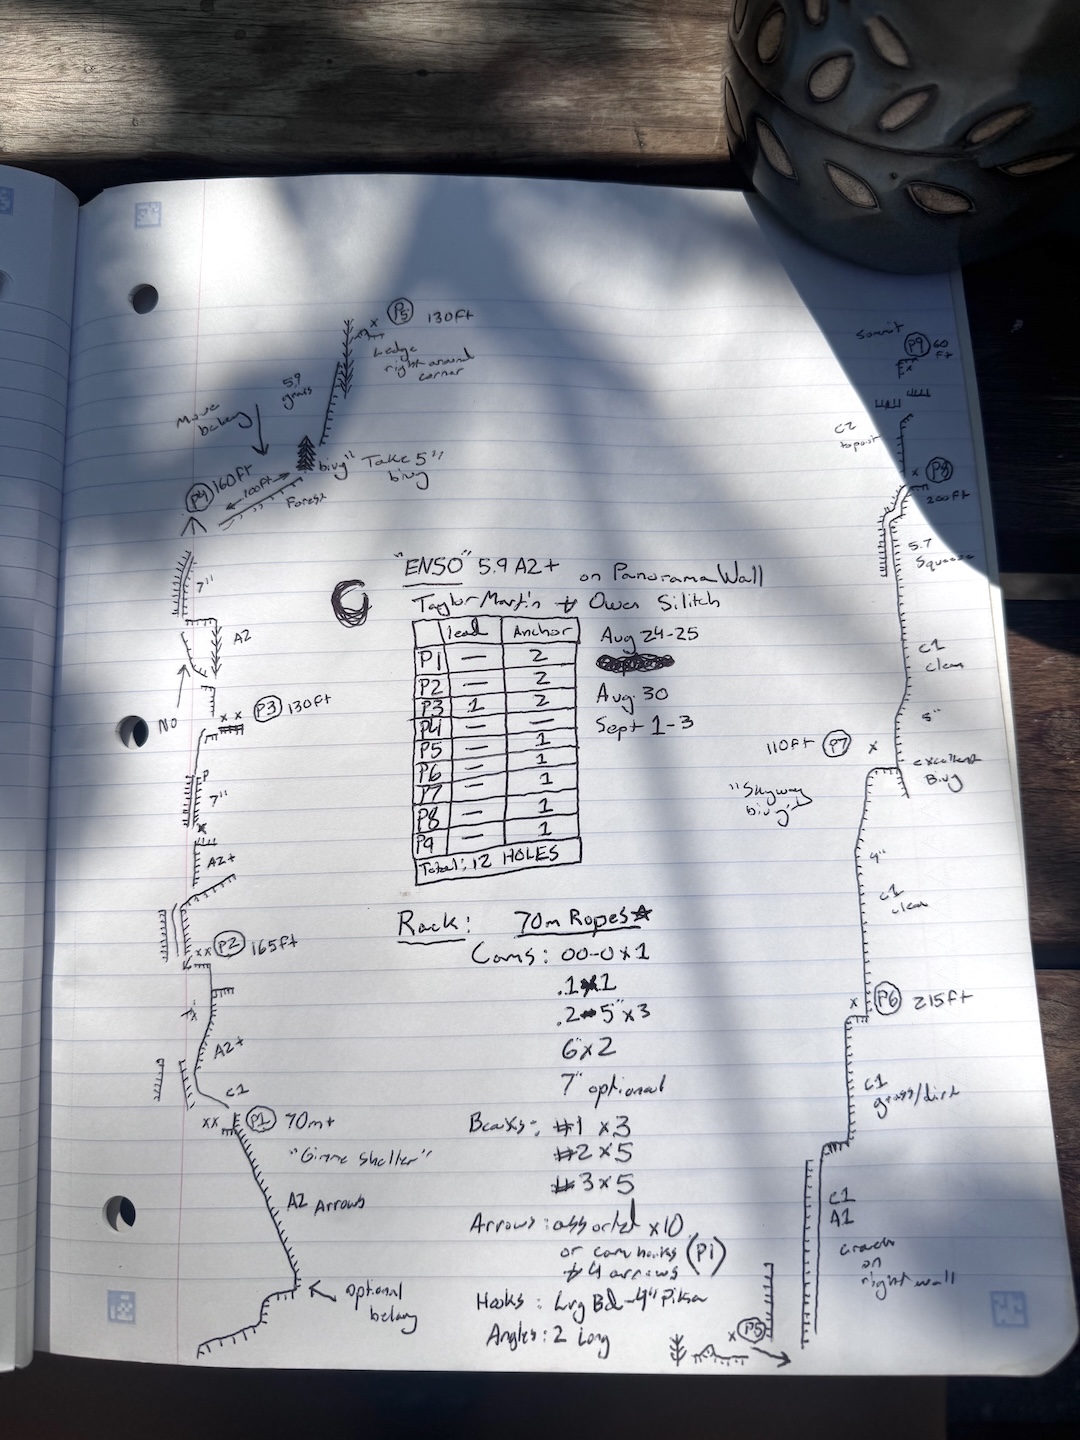 P5 130ft
Ledge
right around
corner
5.9
grass
Move
belay
bivy" Take 5"
bivy
P4 160ft
100ft
Forest
7"
A2
NO
P3 130ft
P
7"
A2+
P2 165ft
A2+
C1
P1 70m+
"Gimme Shelter"
A2 Arrows
optional
belay
"ENSO" 5.9 A2+ on Panorama Wall
Taylor Martin + Owen Silitch
lead Anchor
P1 — 2
P2 — 2
P3 1 2
P4 — —
P5 — 1
P6 — 1
P7 — 1
P8 — 1
P9 — 1
Total: 12 HOLES
Aug 24-25
Aug 30
Sept 1-3
Rack: 70m Ropes
Cams: 00-0 x 1
.1 x 1
.2-5" x 3
6" x 2
7" optional
Beaks: #1 x 3
#2 x 5
#3 x 5
Arrows: assorted x10
or cam hooks (P1)
+ 4 arrows
Hooks: Lrg Bd-4" Pika
Angles: 2 long
Summit P9 60
ft
C2
P8
200ft
5.7
Squeeze
C1
clean
5"
110ft P7
excellent
Bivy
"Skyway
bivy"
4"
C1
clean
P6 215ft
C1
grass/dirt
C1
A1
crack
on
right wall
P5